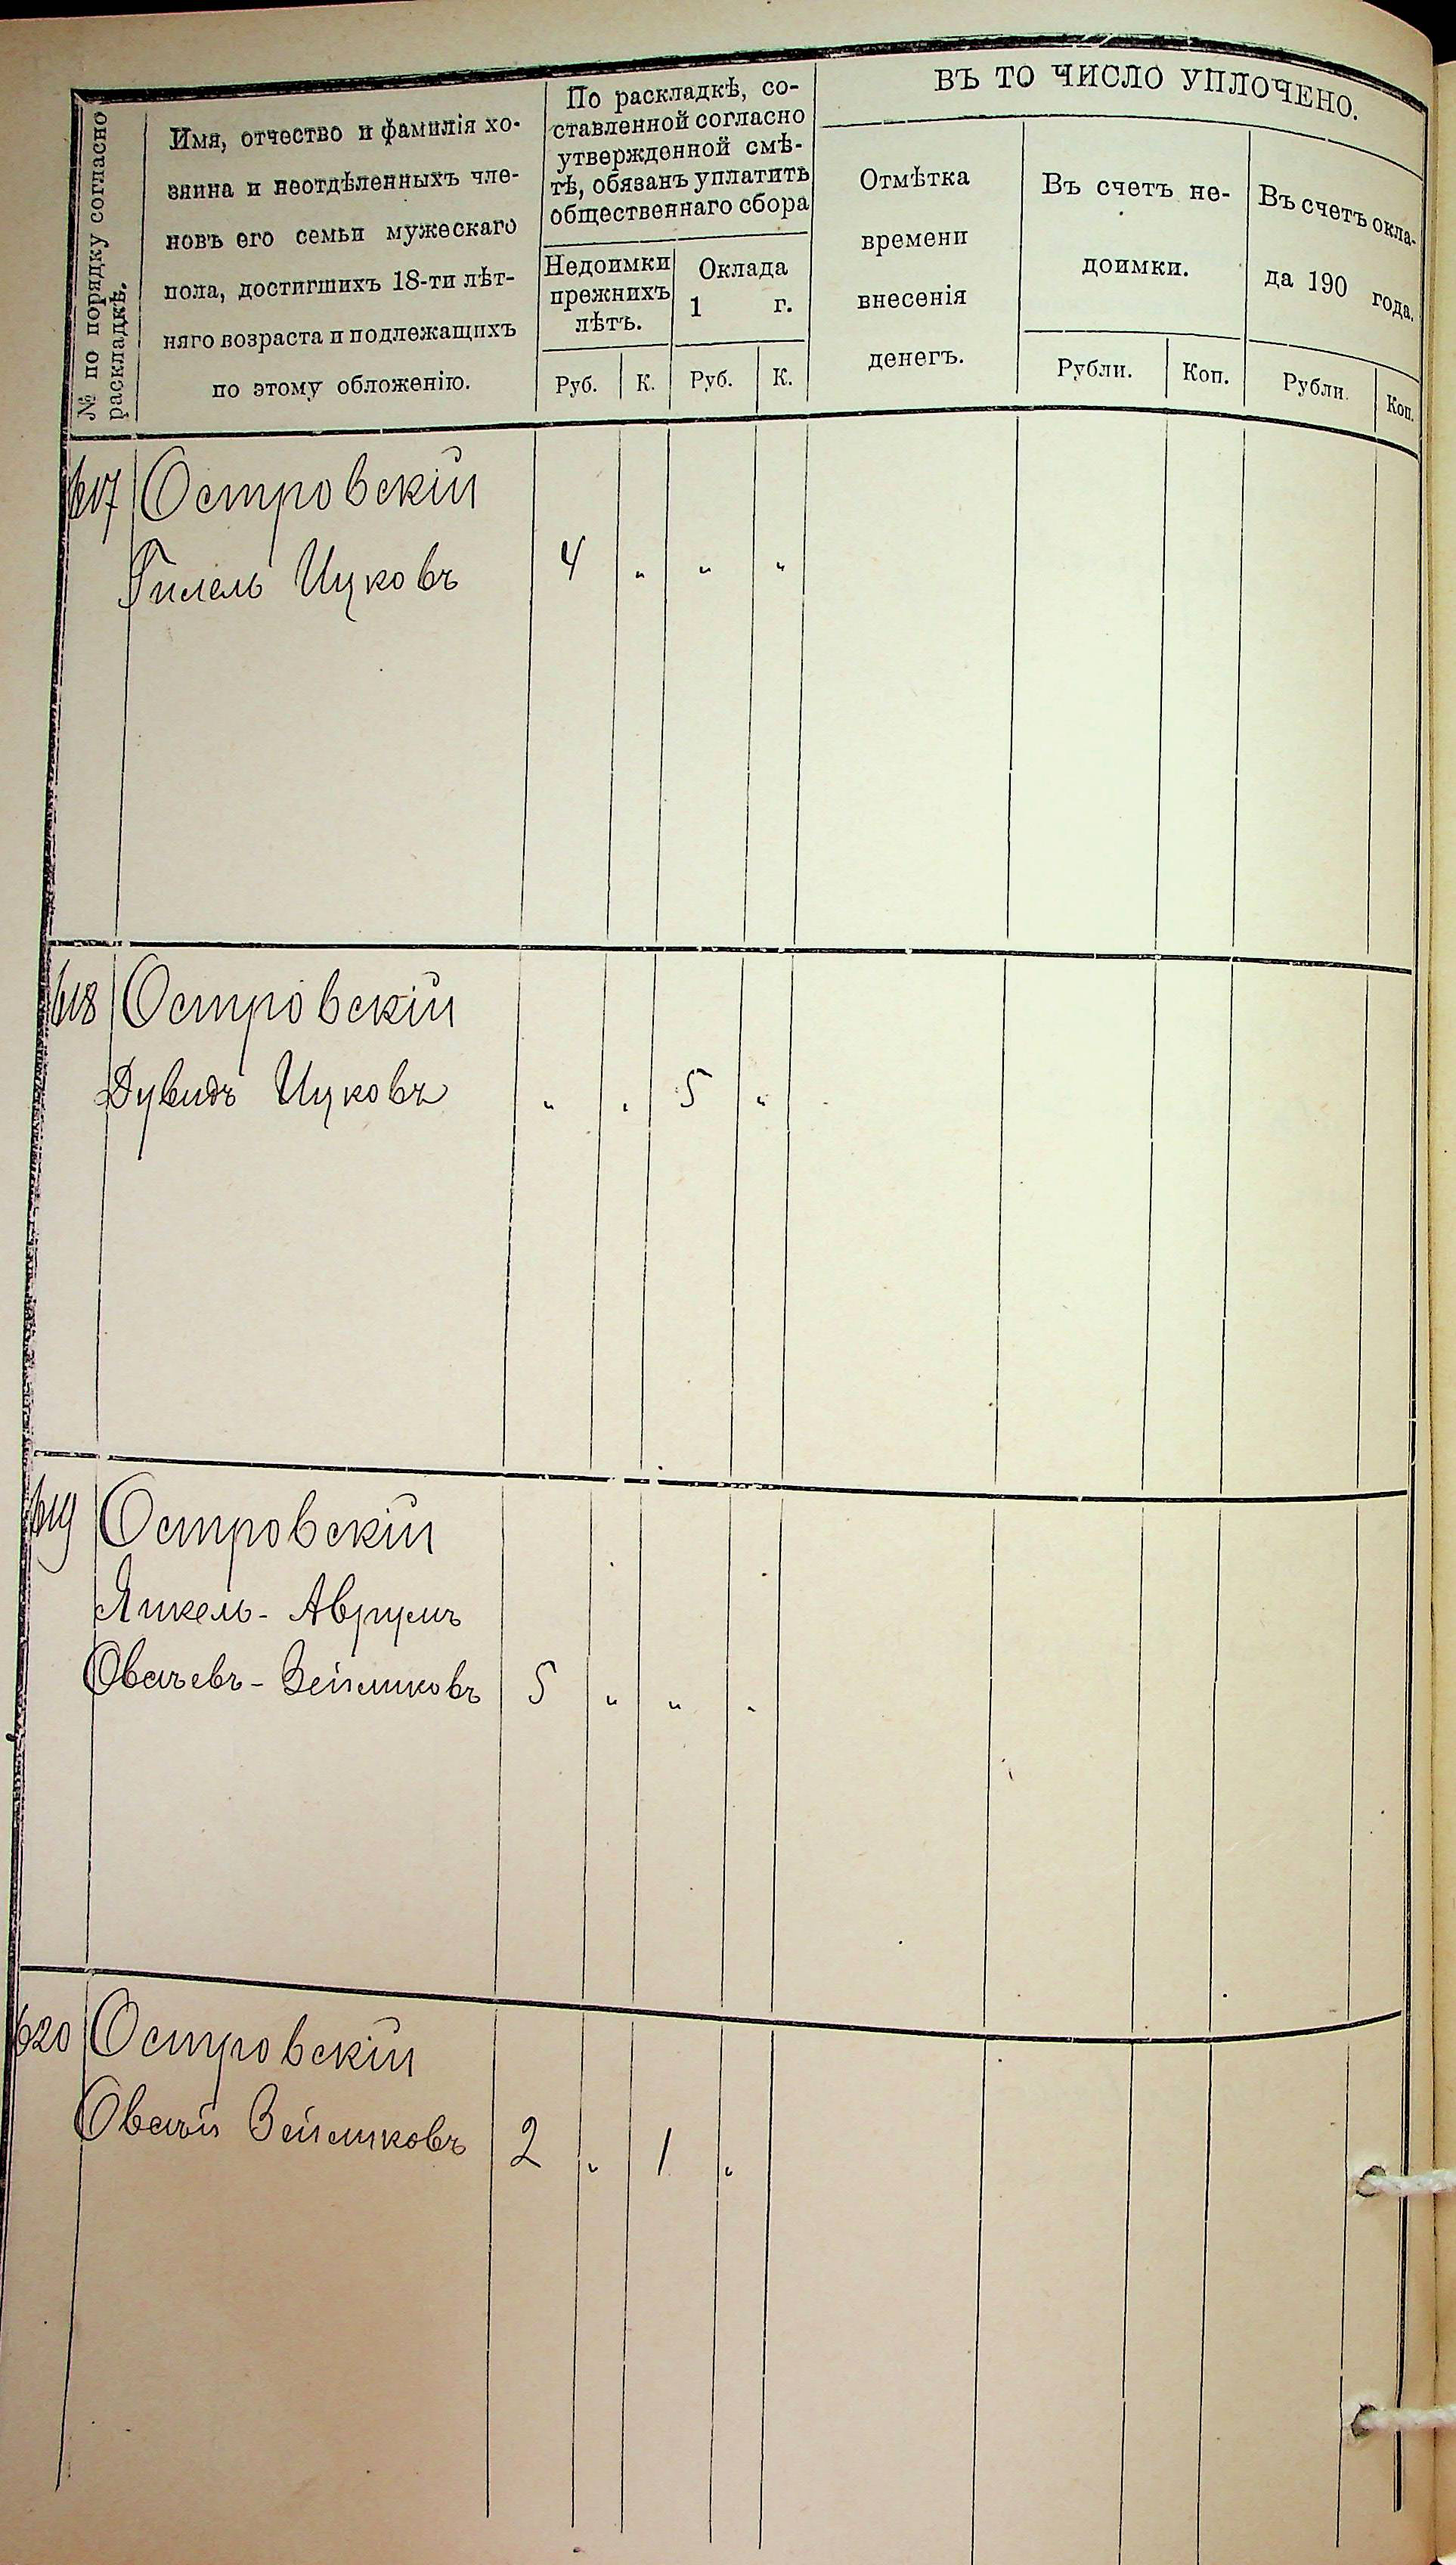 № по порядку согласно
раскладкѣ.
Имя, отчество и фамилія хо-
зяина и неотдѣленныхъ чле-
новъ его семьи мужескаго
пола, достигшихъ 18-ти лѣт-
няго возраста и подлежащихъ
по этому обложенію.
По раскладкѣ, со-
ставленной согласно
утвержденной смѣ-
тѣ, обязанъ уплатить
общественнаго сбора
Недоимки
прежнихъ
лѣтъ.
Оклада
1 г.
Руб. К. Руб. К.
ВЪ ТО ЧИСЛО УПЛОЧЕНО.
Отмѣтка
времени
внесенія
денегъ.
Въ счетъ не-
доимки.
Рубли. Коп.
Въ счетъ окла-
да 190 года.
Рубли. Коп.
617 Островскій
Гилель Ицковъ 4 „ „ „
618 Островскій
Дувидъ Ицковъ „ „ 5 „
619 Островскій
Янкель-Аврумъ
Овсѣевъ- 5 „ „ „
620 Островскій
2 „ 1 „